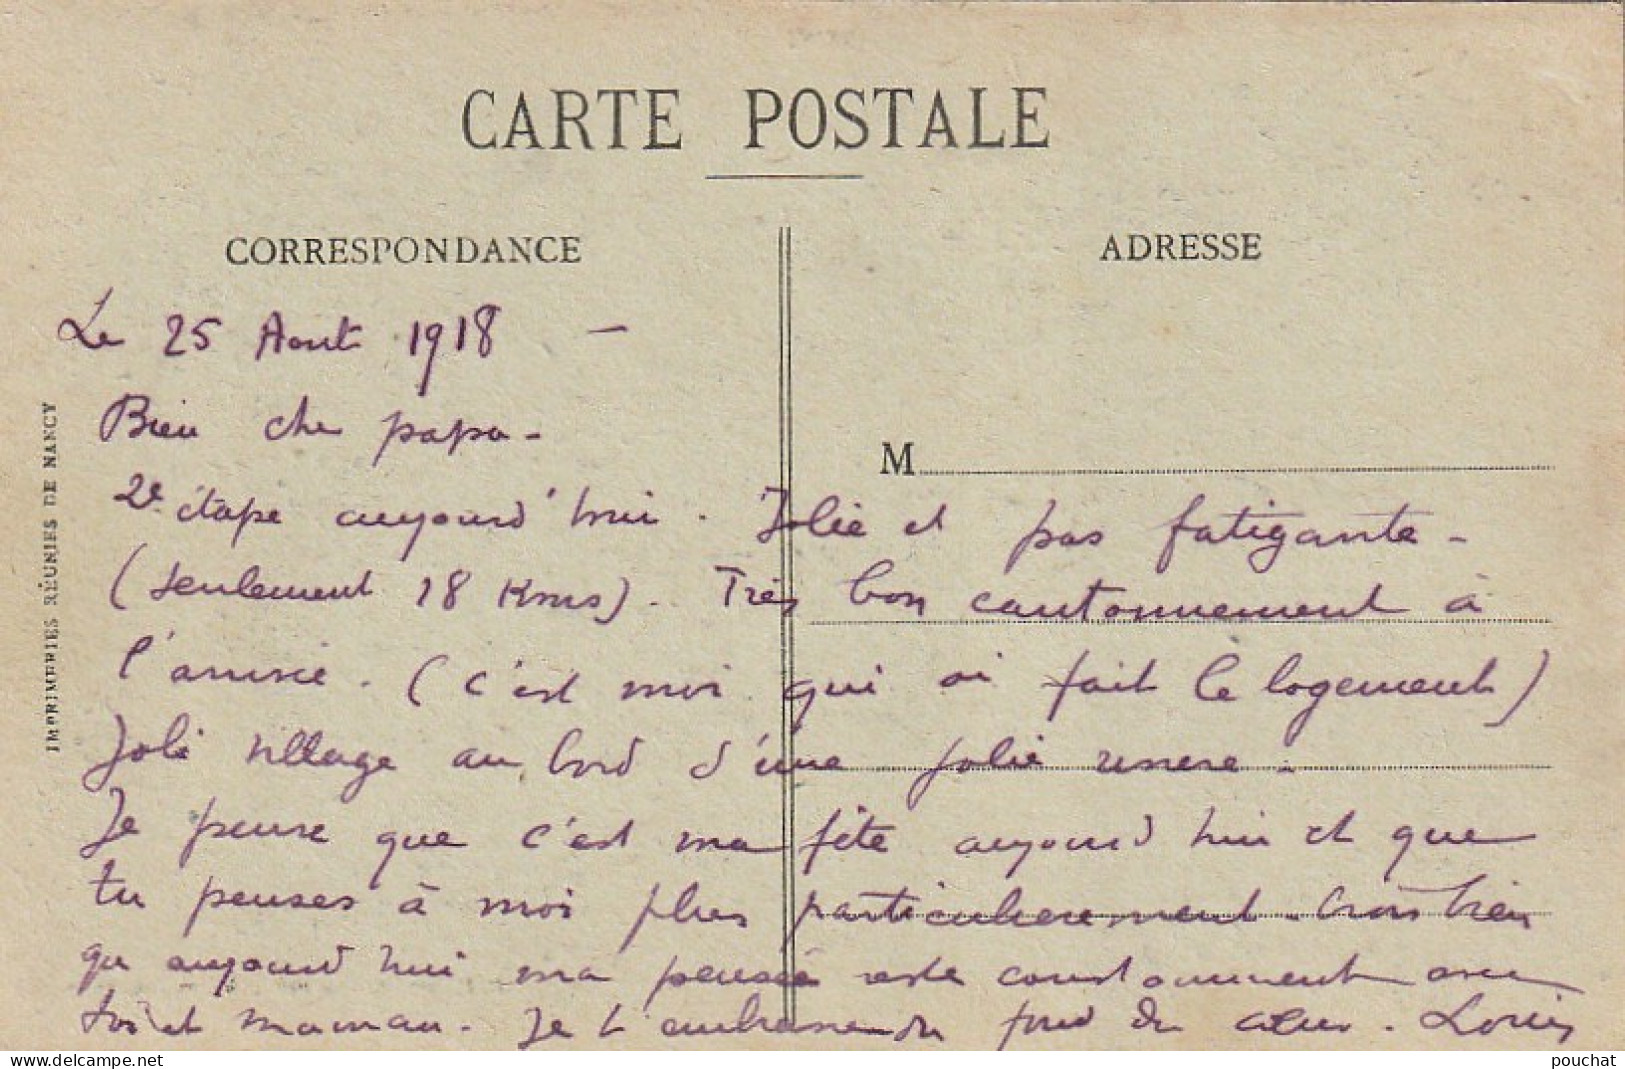 CARTE POSTALE
CORRESPONDANCE
ADRESSE
Le 25 Aout 1918 -
Bien cher papa -
M
2e étape aujourd'hui. Jolie et pas fatigante -
(seulement 18 Kms). Très bon cantonnement à
l'arrivée. (c'est moi qui ai fait le logement)
Joli village au bord d'une jolie rivière -
Je pense que c'est ma fête aujourd'hui et que
tu penses à moi plus particulierement - Crois bien
qu'aujourd'hui ma pensée reste constamment avec
toi et maman. Je t'embrasse du fond du cœur. Louis
IMPRIMERIES RÉUNIES DE NANCY
www.delcampe.net
pouchat